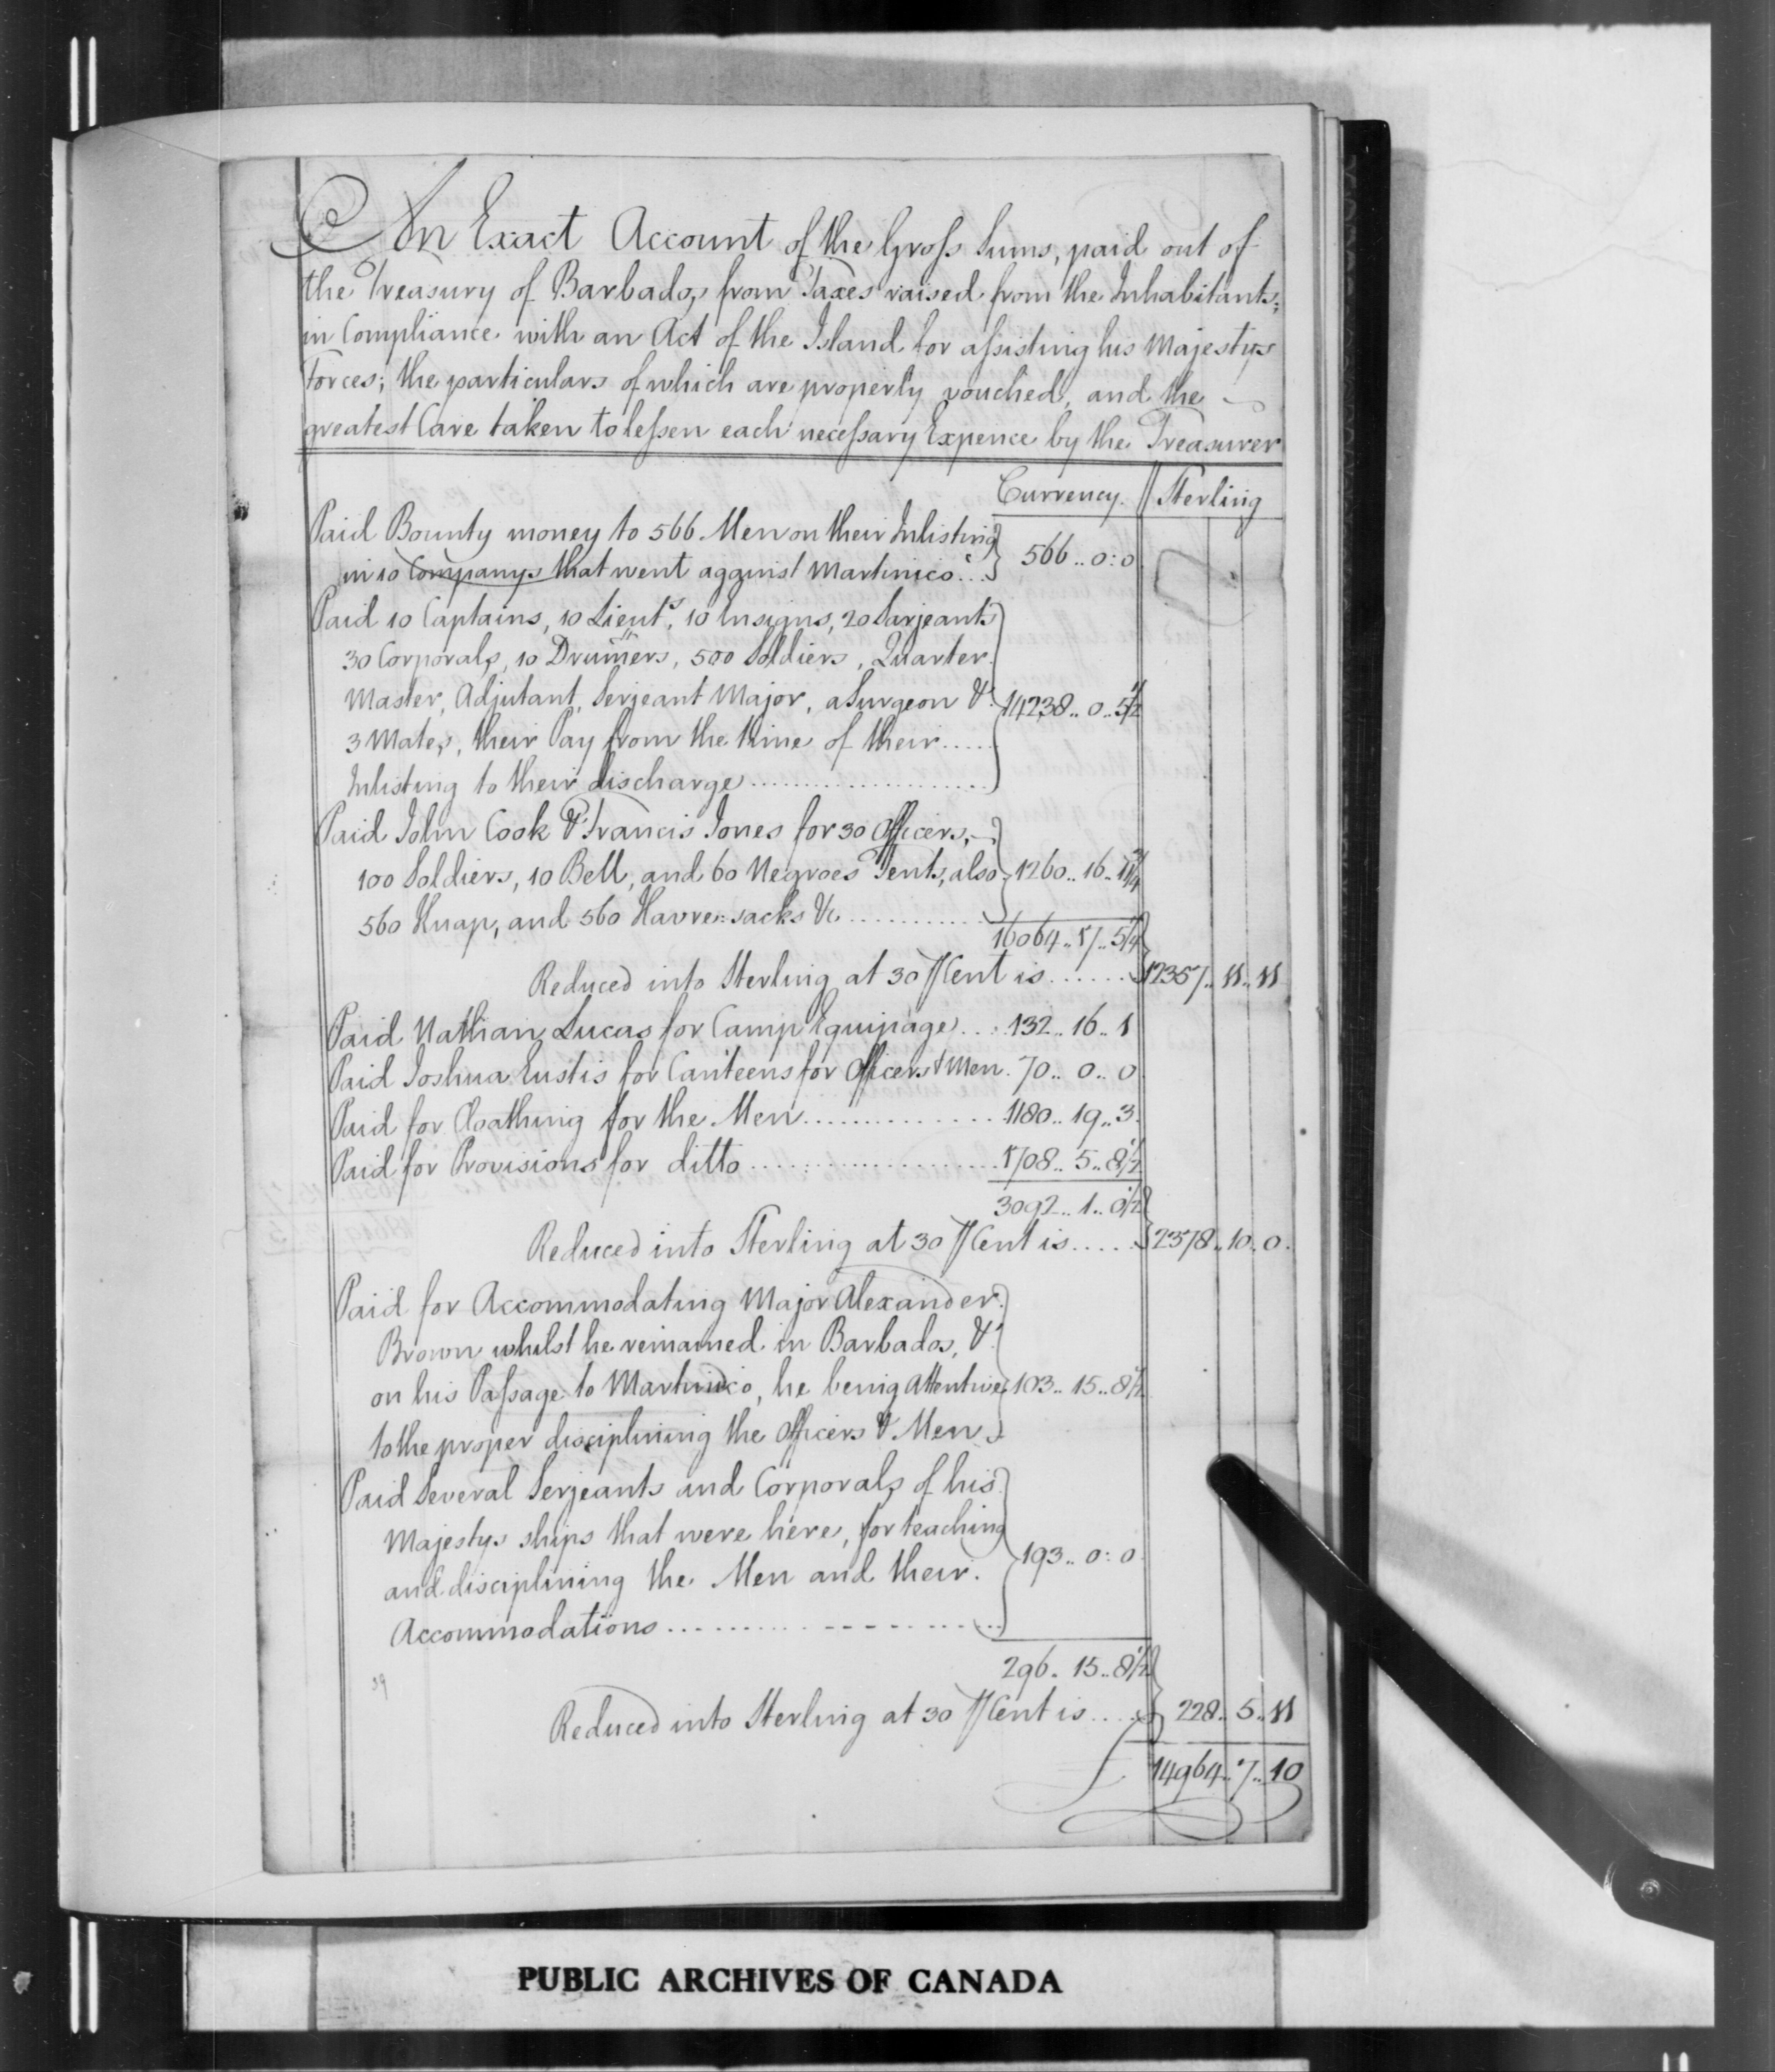 An Exact Account of the Gross Sums, paid out of
the Treasury of Barbados, from Taxes raised from the Inhabitants,
in Compliance with an Act of the Island for assisting his Majestys
Forces; the particulars of which are properly vouched, and the
greatest Care taken to lessen each necessary Expence by the Treasurer
Currency. Sterling
Paid Bounty money to 566 Men on their Inlisting
in 10 Companys that went against Martinico... 566.. 0: 0
Paid 10 Captains, 10 Lieuts, 10 Insigns, 20 Sarjeants
30 Corporals, 10 Drummers, 500 Soldiers, Quarter
Master, Adjutant, Serjeant Major, a Surgeon &
3 Mates, their Pay from the time of their..... 14238.. 0.. 5½
Inlisting to their discharge
Paid John Cook & Francis Jones for 30 Officers,
100 Soldiers, 10 Bell, and 60 Negroes Tents, also 1260.. 16.. 11¾
560 Knap, and 560 Havre=sacks &c
16064.. 17.. 5¼
Reduced into Sterling at 30 ⅌ Cent is...... 12357.. 11.. 11
Paid Nathan Lucas for Camp Equipage... 132.. 16.. 1
Paid Joshua Eustis for Canteens for Officers & Men. 70.. 0.. 0
Paid for Cloathing for the Men 1180.. 19.. 3
Paid for Provisions for ditto 1708.. 5.. 8½
3092.. 1.. 0½
Reduced into Sterling at 30 ⅌ Cent is..... 2378.. 10.. 0.
Paid for Accommodating Major Alexander
Brown whilst he remained in Barbados, &
on his Passage to Martinico, he being Attentive 103.. 15.. 8½
to the proper disciplining the Officers & Men
Paid Several Serjeants and Corporals of his
Majestys ships that were here, for teaching
and disciplining the Men and their. 193.. 0: 0
Accommodations
296.. 15.. 8½
Reduced into Sterling at 30 ⅌ Cent is.... 228.. 5.. 11
£ 14964.. 7.. 10
PUBLIC ARCHIVES OF CANADA